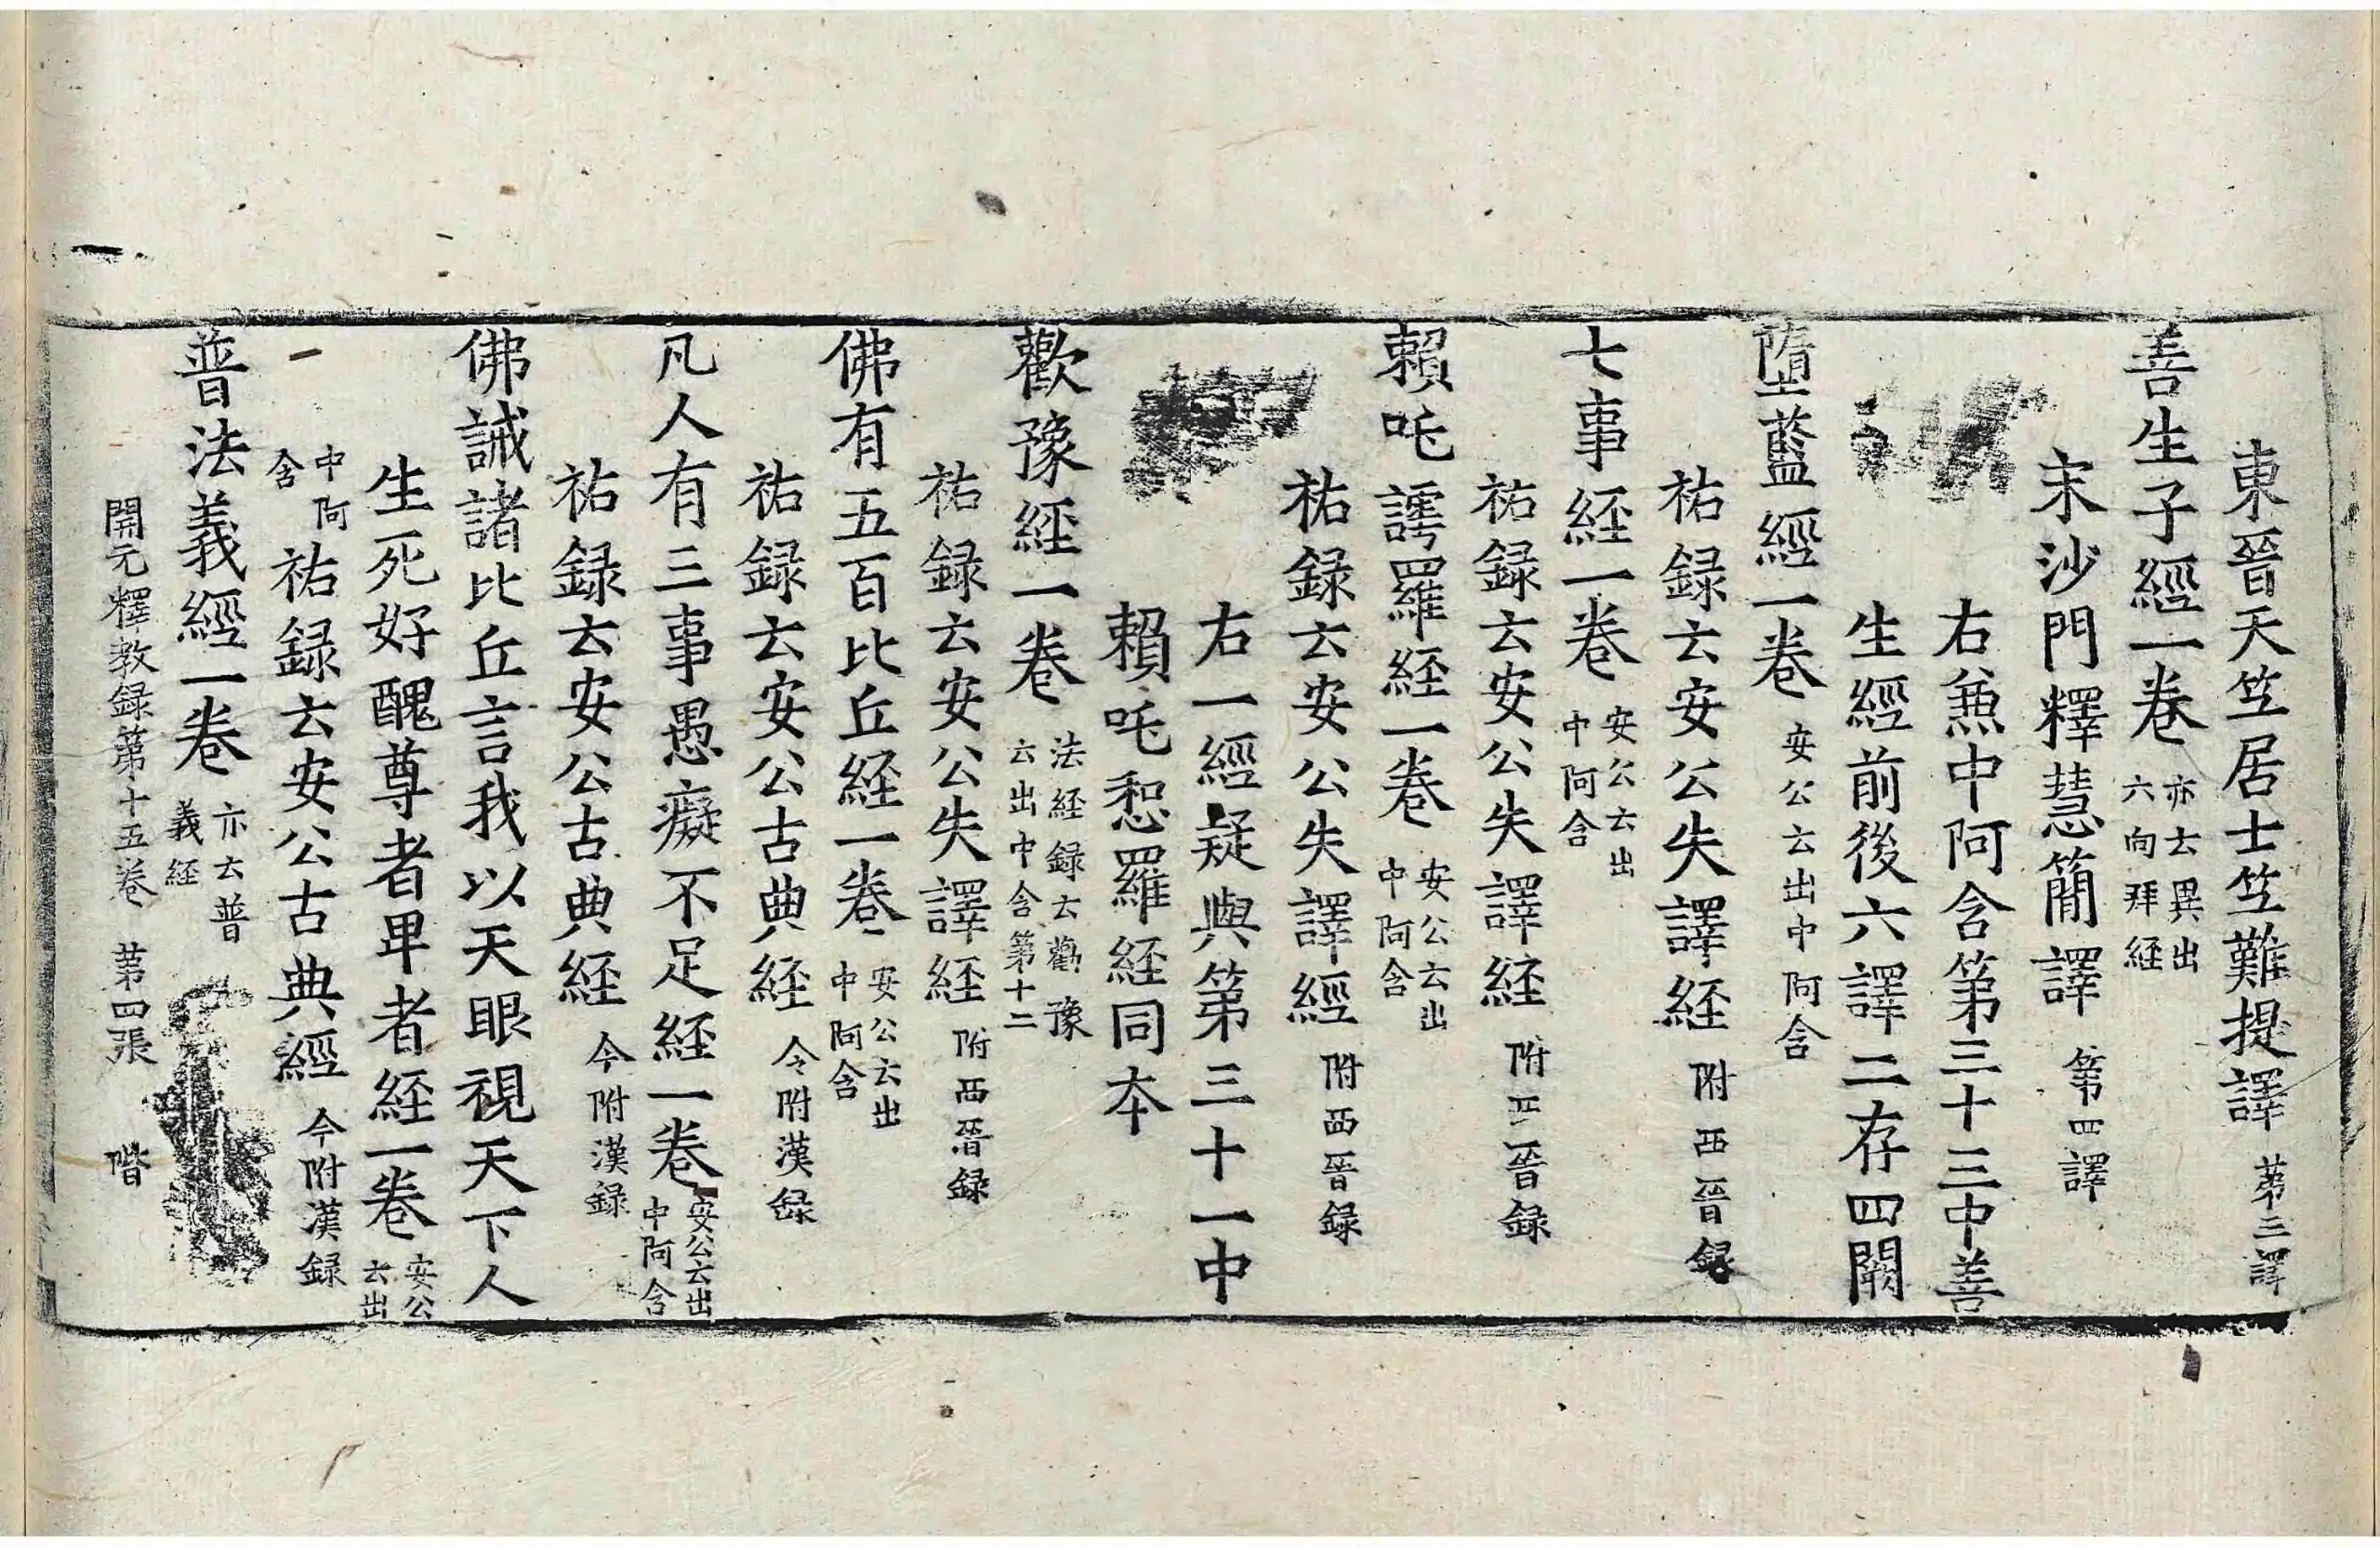 東晉天竺居士竺難提譯 第三譯
善生子經一卷 亦云異出六向拜経
宋沙門釋慧簡譯 第四譯
右𠔥中阿含第三十三中善
生經前後六譯二存四闕
墮藍經一卷 安公云出中阿含
祐録云安公失譯経 附西晉録
七事経一卷 安公云出中阿含
祐録云安公失譯経 附西晉録
賴吒𧭈羅経一卷 安公云出中阿含
祐録云安公失譯經 附西晉録
右一經疑與第三十一中
賴吒惒羅経同本
歡豫経一卷 法経録云勸豫云出中含第十二
祐録云安公失譯経 附西晉録
佛有五百比丘経一卷 安公云出中阿含
祐録云安公古典経 今附漢録
凡人有三事愚癡不足経一卷 安公云出中阿含
祐録云安公古典経 今附漢録
佛誡諸比丘言我以天眼視天下人
生死好醜尊者卑者経一卷 安公云出
中阿含 祐録云安公古典經 今附漢録
普法義經一卷 亦云普義経
開元釋教録第十五卷 第四張 階